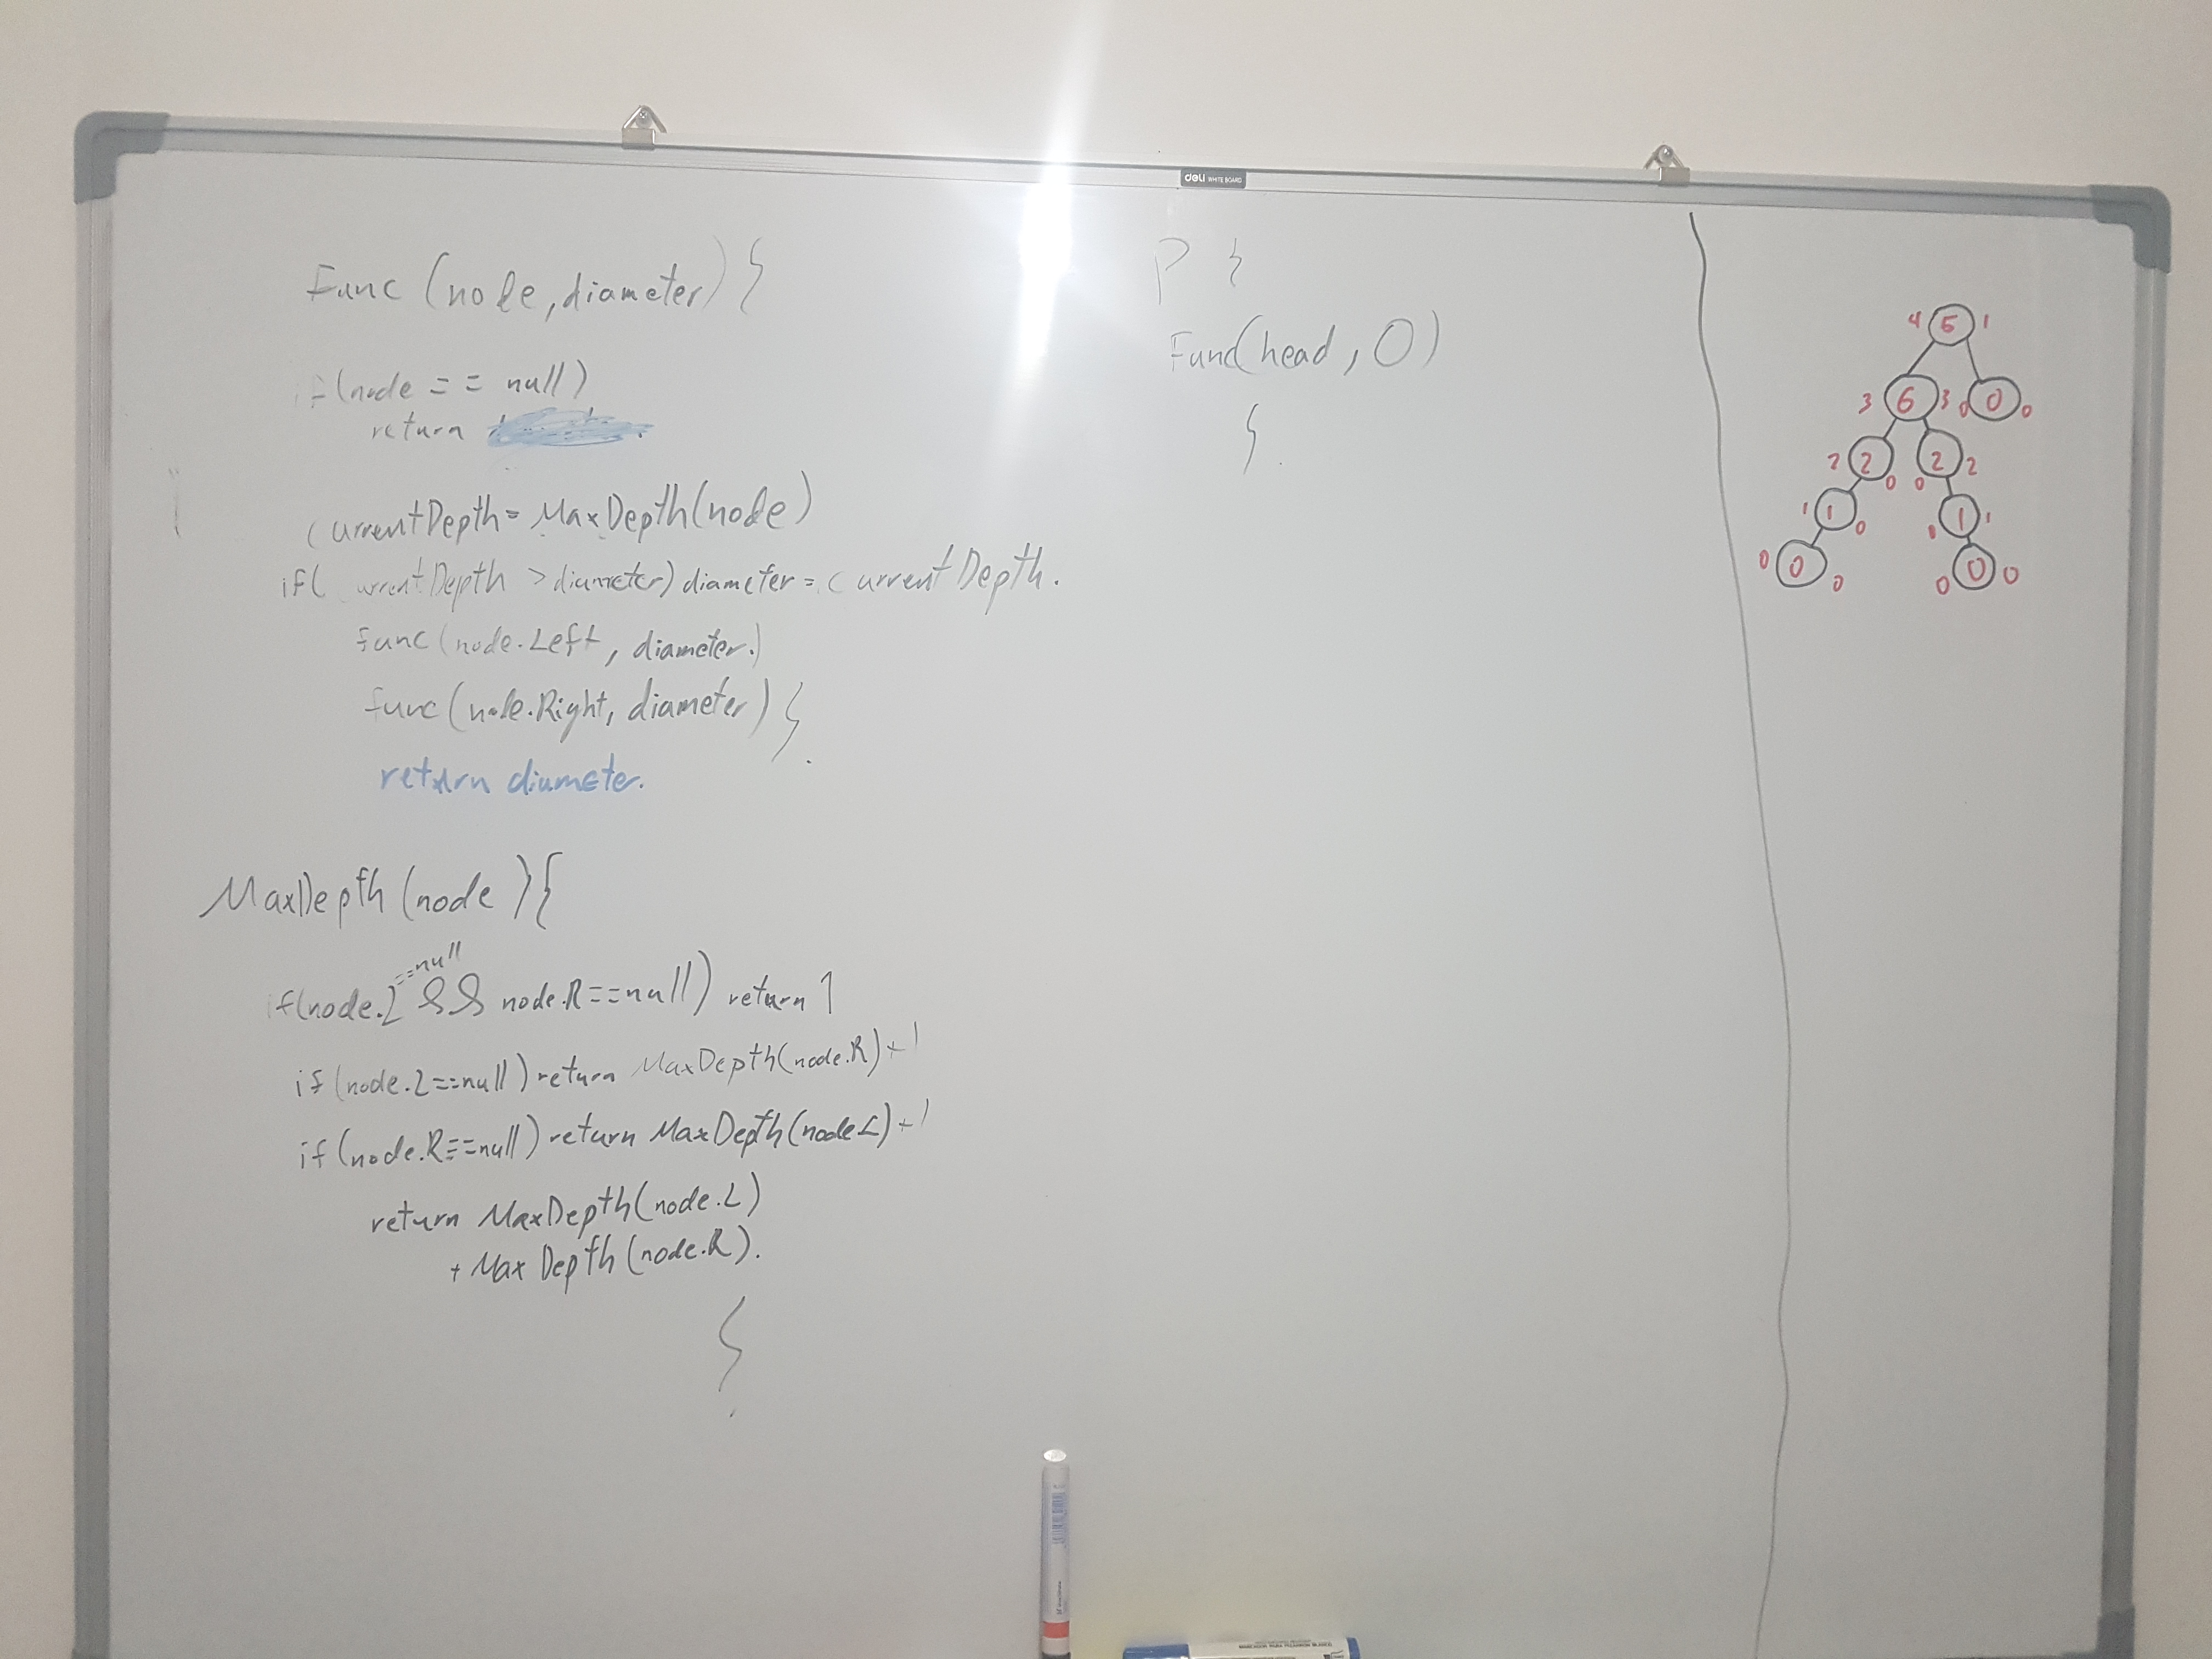 deli WHITE BOARD
Func (node, diameter) {
if(node == null)
return
currentDepth = MaxDepth(node)
if( urrentDepth > diameter) diameter = currentDepth.
func(node.Left, diameter.)
func(node.Right, diameter) }
return diameter.
MaxDepth (node ) {
if(node.L ==null && node.R==null) return 1
if (node.L==null) return MaxDepth(node.R)+1
if (node.R==null) return MaxDepth(node.L)+1
return MaxDepth(node.L)
+ MaxDepth(node.R).
}
P {
Func(head, 0)
}
4 5 1
3 6 3 0 0 0
2 2 0 0 2 2
1 1 0 0 1 1
0 0 0 0 0 0